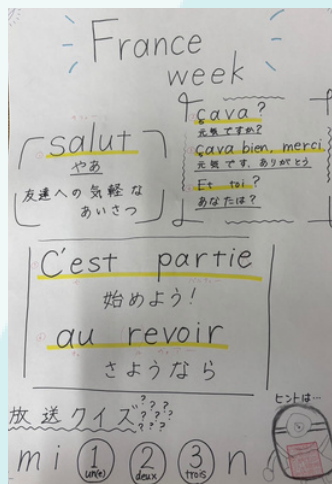 France
week
salut
やあ
友達への気軽な
あいさつ
çava?
元気ですか?
çava bien, merci
元気です、ありがとう
Et toi?
あなたは?
C'est partie
始めよう!
au revoir
さようなら
放送クイズ???????
ヒントは…
mi 1 2 3 n
un(e) deux trois